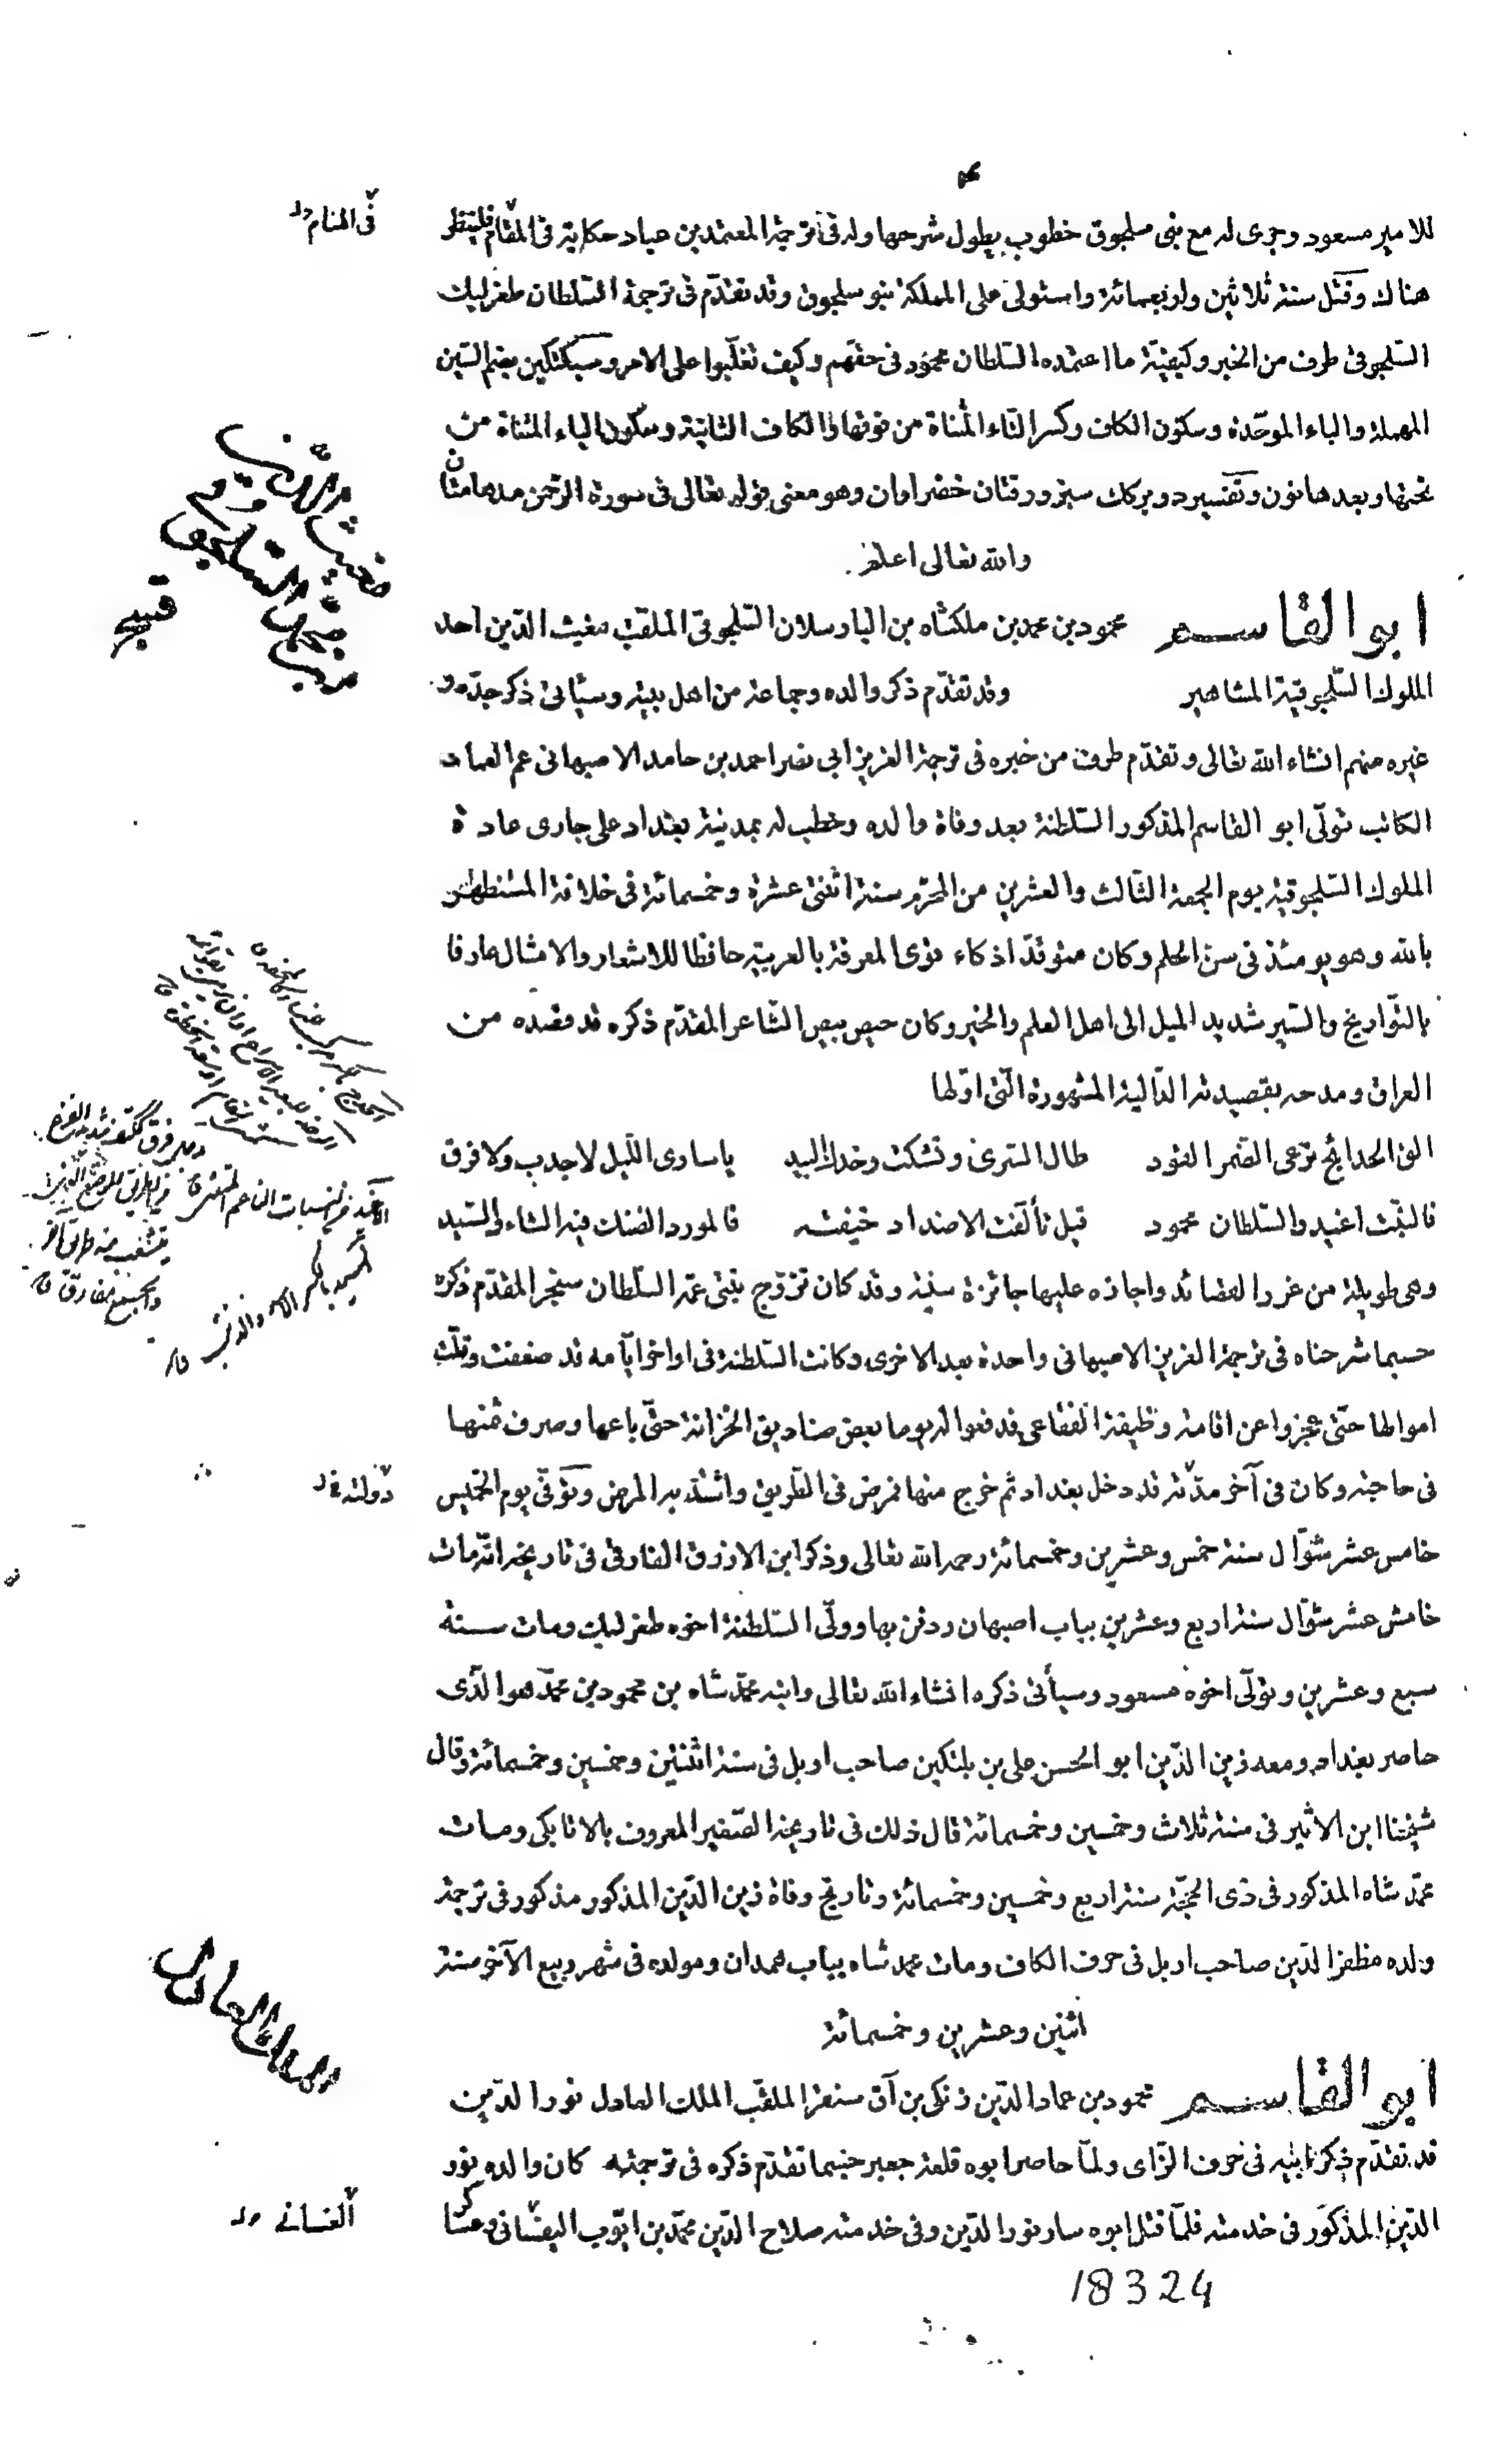 للامير مسعود وجرى له مع بنى سلجوق خطوب يطول شرحها وله فى ترجمة المعتمد بن عباد حكاية فى المقام فلينظر
فى المنام
هناك وقتل سنة ثلاثين واربعمائة واستولى على المملكة بنو سلجوق وقد تقدّم فى ترجمة السّلطان طغرلبك
السّلجوقى طرف من الخبر وكيفيّة ما اعتمده السّلطان محمود فى حقّهم وكيف تغلّبوا على الامر وسبكتكين بضم السّين
المهملة والباء الموحّدة وسكون الكاف وكسر التّاء المثناة من فوقها والكاف الثانية وسكون الياء المثناة من
تحتها وبعدها نون وتفسيره دو برك سبز ورقتان خضراوان وهو معنى قوله تعالى فى سورة الرّحمن مدهامتان
والله تعالى اعلم
ابو القاسم محمود بن محمد بن ملكشاه بن الب ارسلان السّلجوقى الملقّب مغيث الدّين احد
الملوك السّلجوقية المشاهير وقد تقدّم ذكر والده وجماعة من اهل بيته وسيأتى ذكر جدّه و
غيره منهم انشاء الله تعالى وتقدّم طرف من خبره فى ترجمة العزيز ابى نصر احمد بن حامد الاصبهانى عم العماد
الكاتب تولّى ابو القاسم المذكور السّلطنة بعد وفاة والده وخطب له بمدينة بغداد على جارى عادة
الملوك السّلجوقية يوم الجمعة الثّالث والعشرين من المحرّم سنة اثنتى عشرة وخمسمائة فى خلافة المستظهر
بالله وهو يومئذ فى سنّ الحلم وكان متوقّدا ذكاء قوى المعرفة بالعربيّة حافظا للاشعار والامثال عارفا
بالتّواريخ والسّير شديد الميل الى اهل العلم والخير وكان حيص بيص الشّاعر المقدّم ذكره قد قصده من
العراق ومدحه بقصيدته الدّالية المشهورة الّتى اوّلها
الق الحدايج ترعى الضّمر القود طال السّرى وتشكت وخدك البيد يا سارى اللّيل لا جدب ولا فرق
فالنّبت اغيد والسّلطان محمود قيل تألّفت الاضداد خيفته فالمورد الضنك فيه الشاء والسّيد
وهى طويلة من غرر القصائد واجازه عليها جائزة سنيّة وقد كان تزوّج بنتى عمّه السّلطان سنجر المقدّم ذكره
حسبما شرحناه فى ترجمة العزيز الاصبهانى واحدة بعد الاخرى وكانت السّلطنة فى اواخر ايّامه قد ضعفت وقلّت
اموالها حتّى عجزوا عن اقامة وظيفة الفقاعى فدفعوا له يوما بعض صناديق الخزانة حتّى باعها وصرف ثمنها
فى حاجته وكان فى آخر مدّته قد دخل بغداد ثم خرج منها فمرض فى الطّريق واشتدّ به المرض وتوفّى يوم الخميس
دولته
خامس عشر شوّال سنة خمس وعشرين وخمسمائة رحمه الله تعالى وذكر ابن الازرق الفارقى فى تاريخه انّه مات
خامس عشر شوّال سنة اربع وعشرين بباب اصبهان ودفن بها وولّى السّلطنة اخوه طغرلبك ومات سنة
سبع وعشرين وتولّى اخوه مسعود وسيأتى ذكره انشاء الله تعالى وابنه محمّد شاه بن محمود بن محمّد هو الّذى
حاصر بغداد ومعه زين الدّين ابو الحسن على بن بلتكين صاحب اربل فى سنة اثنتين وخمسين وخمسمائة وقال
شيخنا ابن الاثير فى سنة ثلاث وخمسين وخمسمائة قال ذلك فى تاريخه الصّغير المعروف بالاتابكى ومات
محمّد شاه المذكور فى ذى الحجّة سنة اربع وخمسين وخمسمائة وتاريخ وفاة زين الدّين المذكور مذكور فى ترجمة
ولده مظفر الدّين صاحب اربل فى حرف الكاف ومات محمد شاه بباب همدان ومولده فى شهر ربيع الآخر سنة
اثنين وعشرين وخمسمائة
الملك العادل
ابو القاسم محمود بن عماد الدّين زنكى بن آق سنقر الملقّب الملك العادل نور الدّين
قد تقدّم ذكر ابيه فى حرف الزّاى ولمّا حاصر ابوه قلعة جعبر حسبما تقدّم ذكره فى ترجمته كان والده نور
الدّين المذكور فى خدمته فلمّا قتل ابوه سار نور الدّين وفى خدمته صلاح الدّين محمّد بن ايّوب اليغسّانى وعسكر
الغسانى
18324